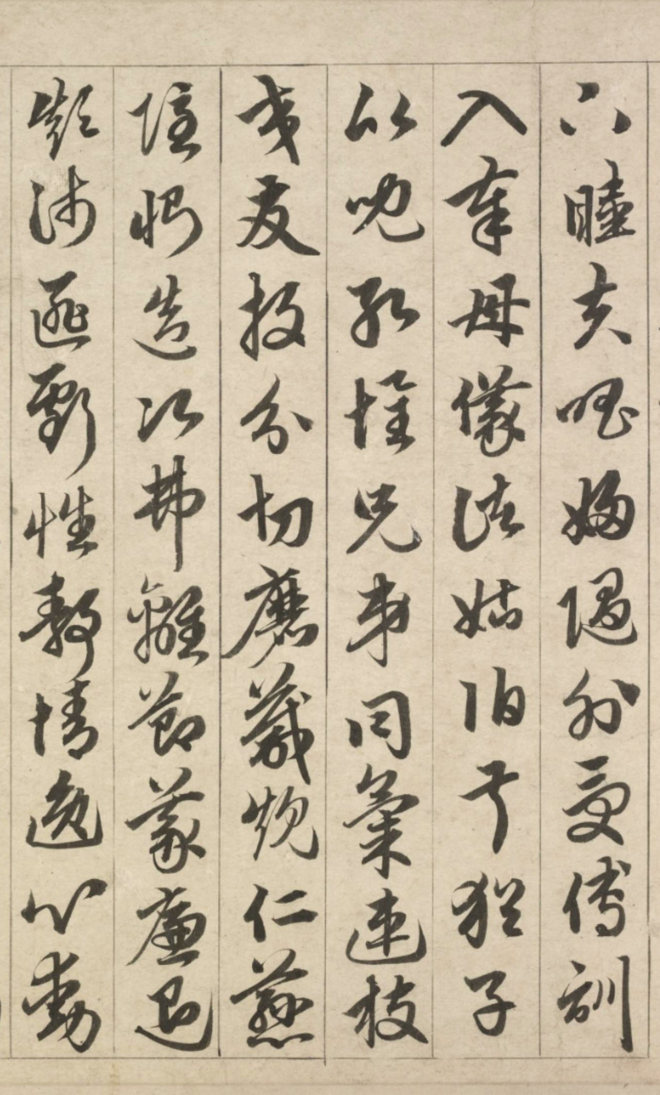 下睦夫唱婦隨外受傅訓
入奉母儀諸姑伯叔猶子
比兒孔懷兄弟同氣連枝
交友投分切磨箴規仁慈
隱惻造次弗離節義廉退
顛沛匪虧性靜情逸心動